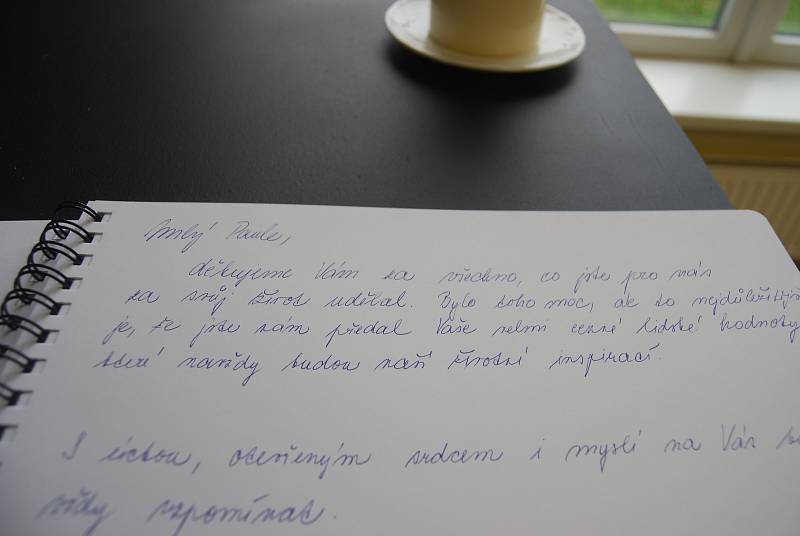 Milý Paule,
děkujeme Vám za všechno, co jste pro nás
za svůj život udělal. Bylo toho moc, ale to nejdůležitější
je, že jste nám předal Vaše velmi cenné lidské hodnoty
které navždy budou naší životní inspirací.
S úctou, otevřeným srdcem i myslí na Vás
vždy vzpomínat.